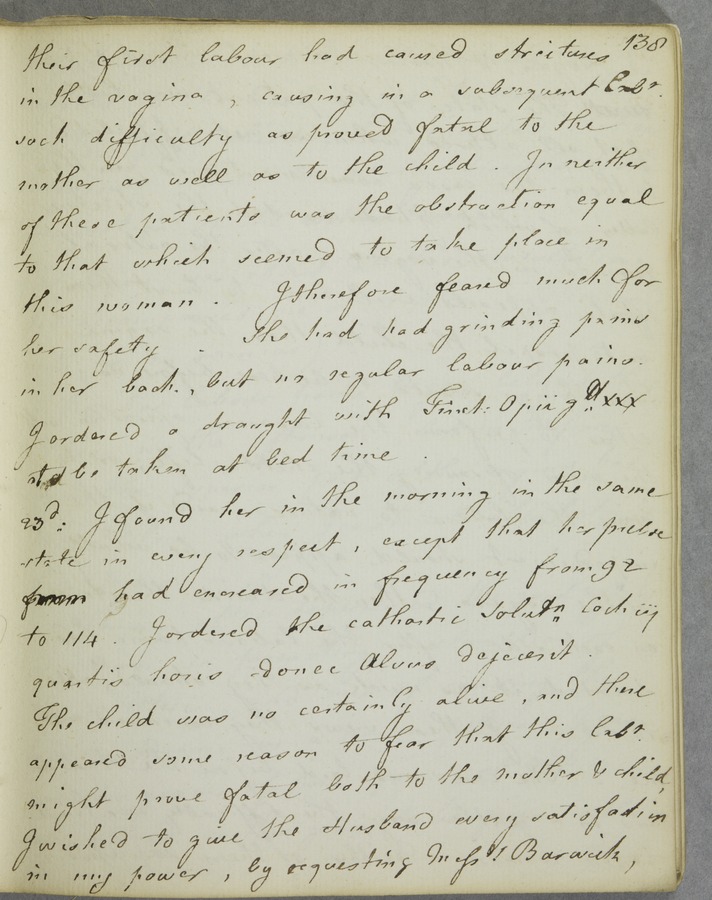 138
their first labour had caused strictures
in the vagina, causing in a subsequent Labr.
such difficulty as proved fatal to the
mother as well as to the child. In neither
of these patients was the obstruction equal
to that which seemed to take place in
this woman. I therefore feared much for
her safety. She had had grinding pains
in her back, but no regular labour pains.
I ordered a draught with Tinct: Opii gtt xxx
to be taken at bed time.
23d: I found her in the morning in the same
state in every respect, except that her pulse
had encreased in frequency from 92
to 114. I ordered the cathartic Solutn Coch iij
quartis horis donec Alvus dejecerit.
The child was no certainly alive, and there
appeared some reason to fear that this Labr.
might prove fatal both to the mother & child,
I wished to give the Husband every satisfaction
in my power, by requesting Messrs Barwick,